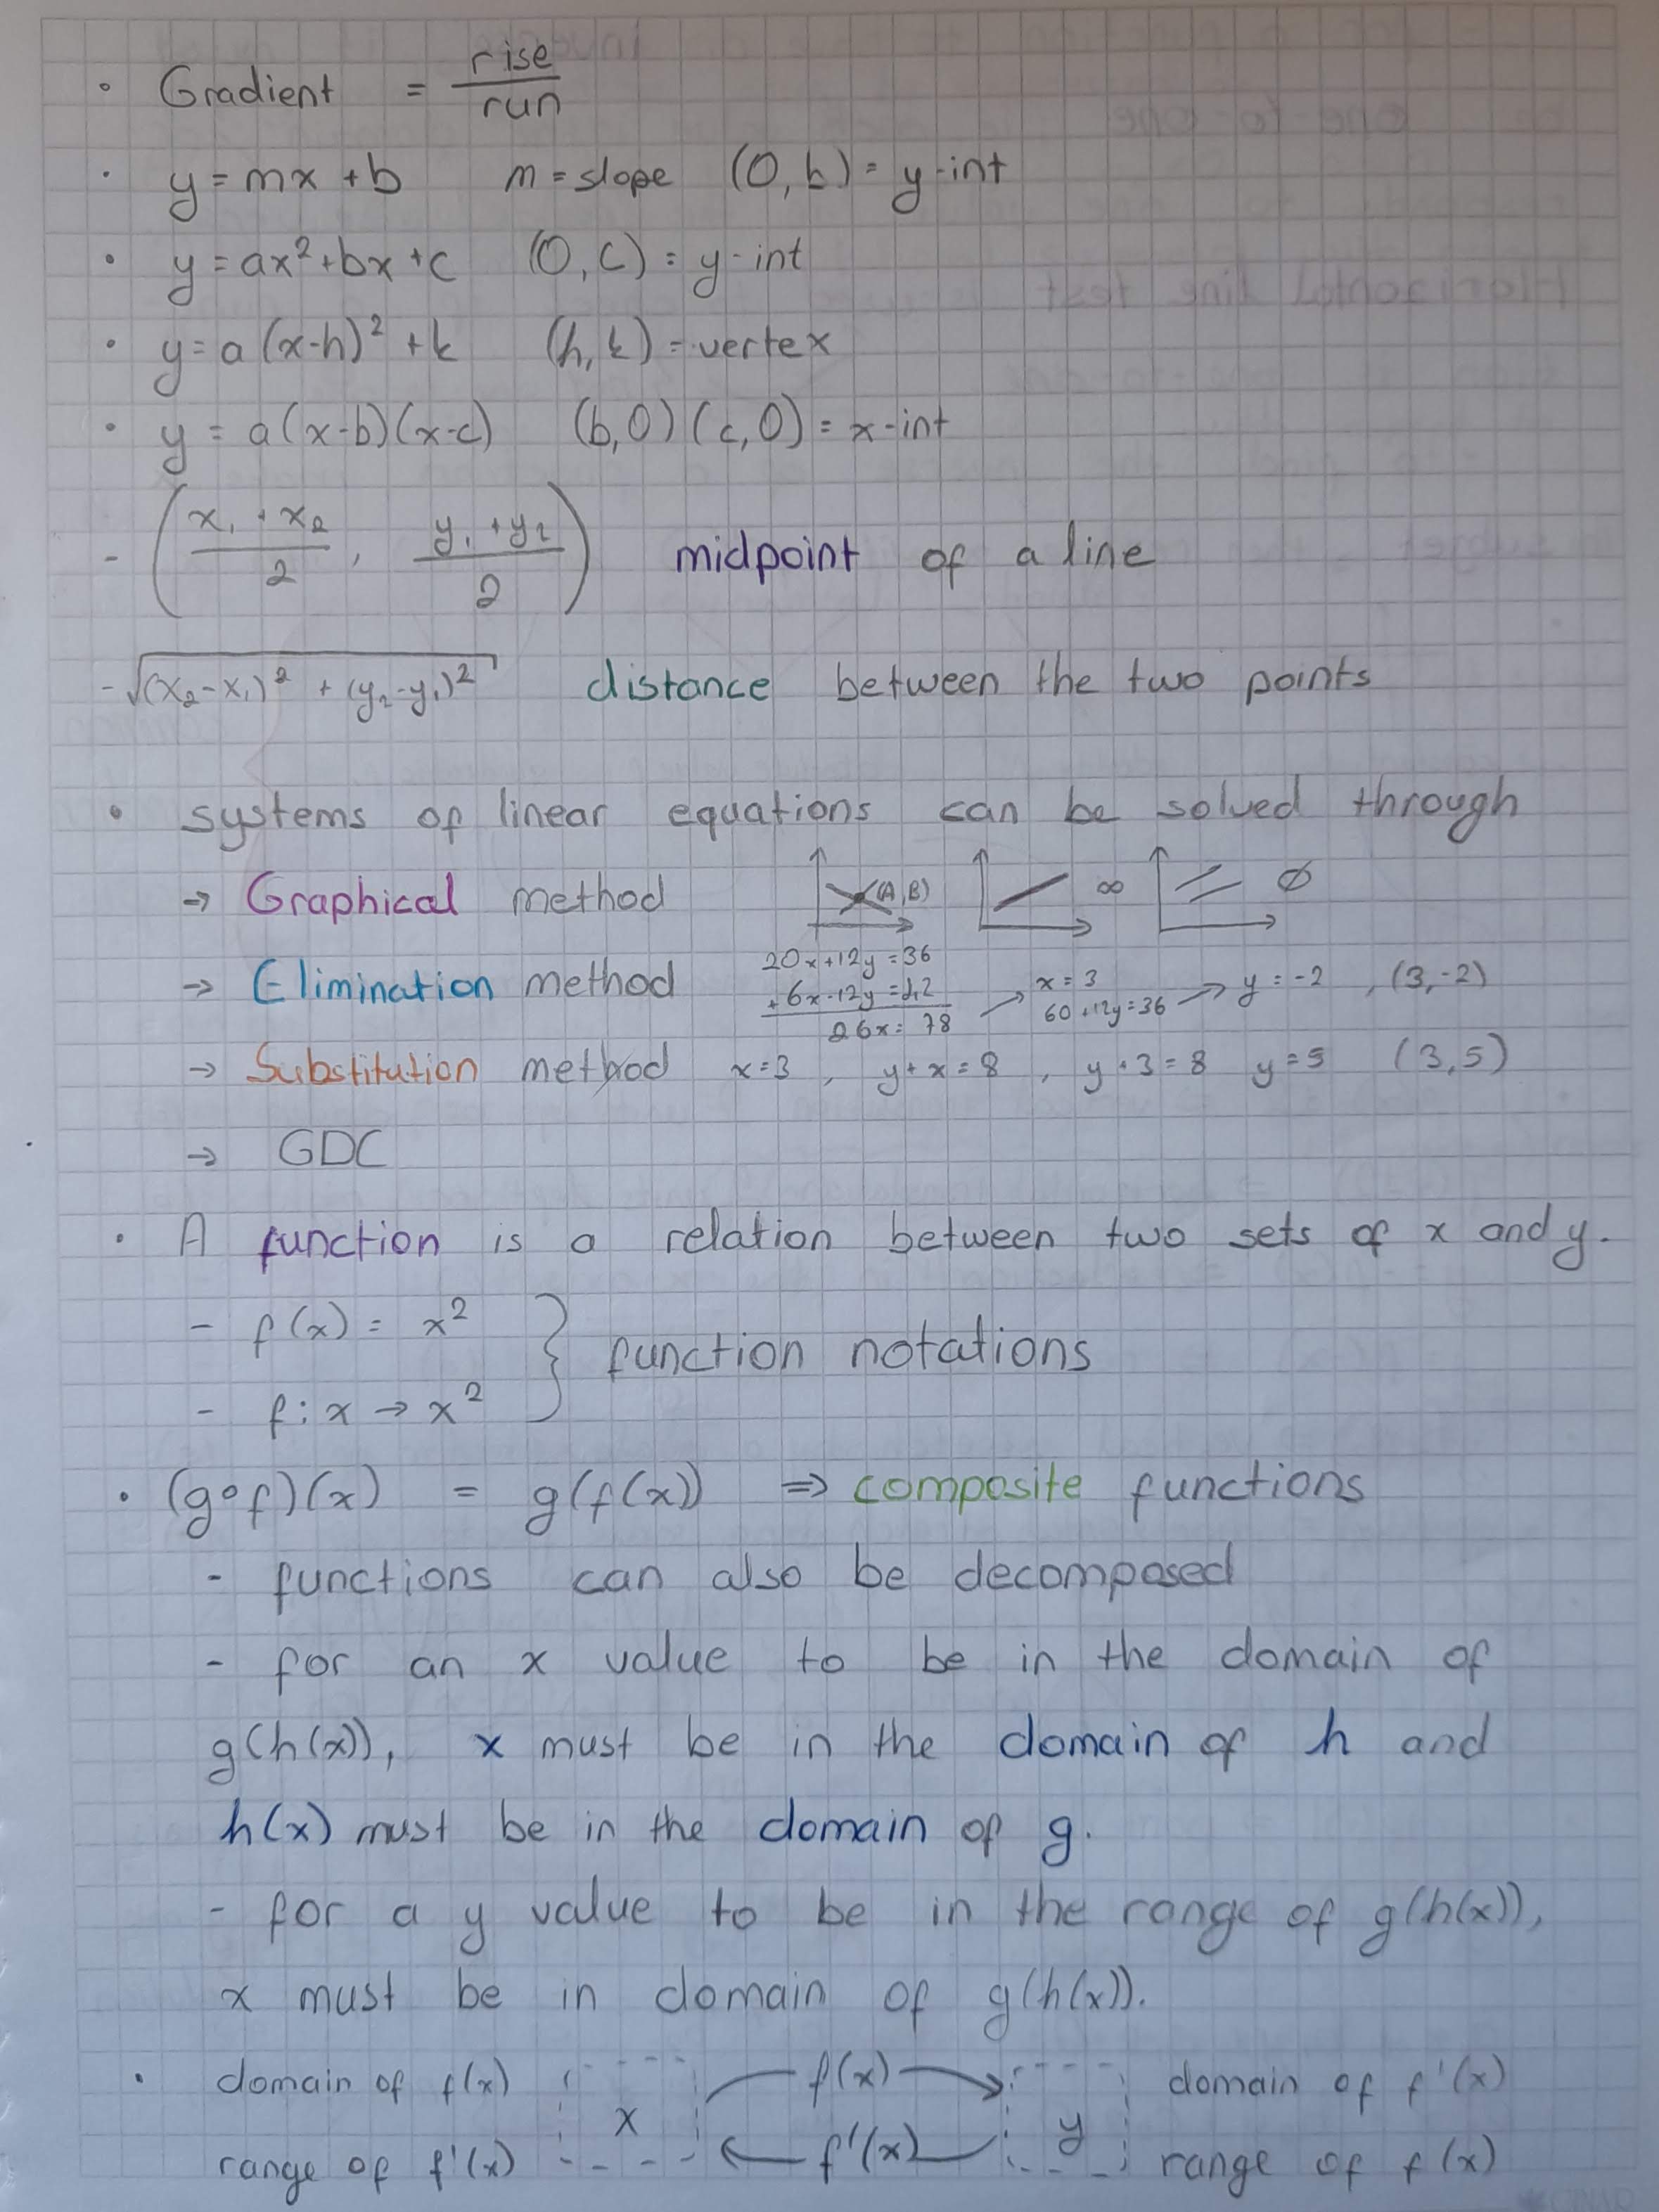 • Gradient = rise/run
• y = mx + b m = slope (0, b) = y-int
• y = ax² + bx + c (0, c) = y-int
• y = a(x-h)² + k (h, k) = vertex
• y = a(x-b)(x-c) (b,0) (c,0) = x-int
- (x₁ + x₂/2, y₁ + y₂/2) midpoint of a line
- √(x₂-x₁)² + (y₂-y₁)² distance between the two points
• systems of linear equations can be solved through
→ Graphical method (A,B) ∞ ∅
20x+12y=36
→ Elimination method +6x-12y=42 x=3 → y=-2, (3,-2)
26x=78 60+12y=36
→ Substitution method x=3, y+x=8, y+3=8 y=5 (3,5)
→ GDC
• A function is a relation between two sets of x and y.
- f(x) = x²
} function notations
- f: x → x²
• (g∘f)(x) = g(f(x)) ⇒ composite functions
- functions can also be decomposed
- for an x value to be in the domain of
g(h(x)), x must be in the domain of h and
h(x) must be in the domain of g.
- for a y value to be in the range of g(h(x)),
x must be in domain of g(h(x)).
• domain of f(x) x f(x) y domain of f'(x)
range of f'(x) f'(x) range of f(x)